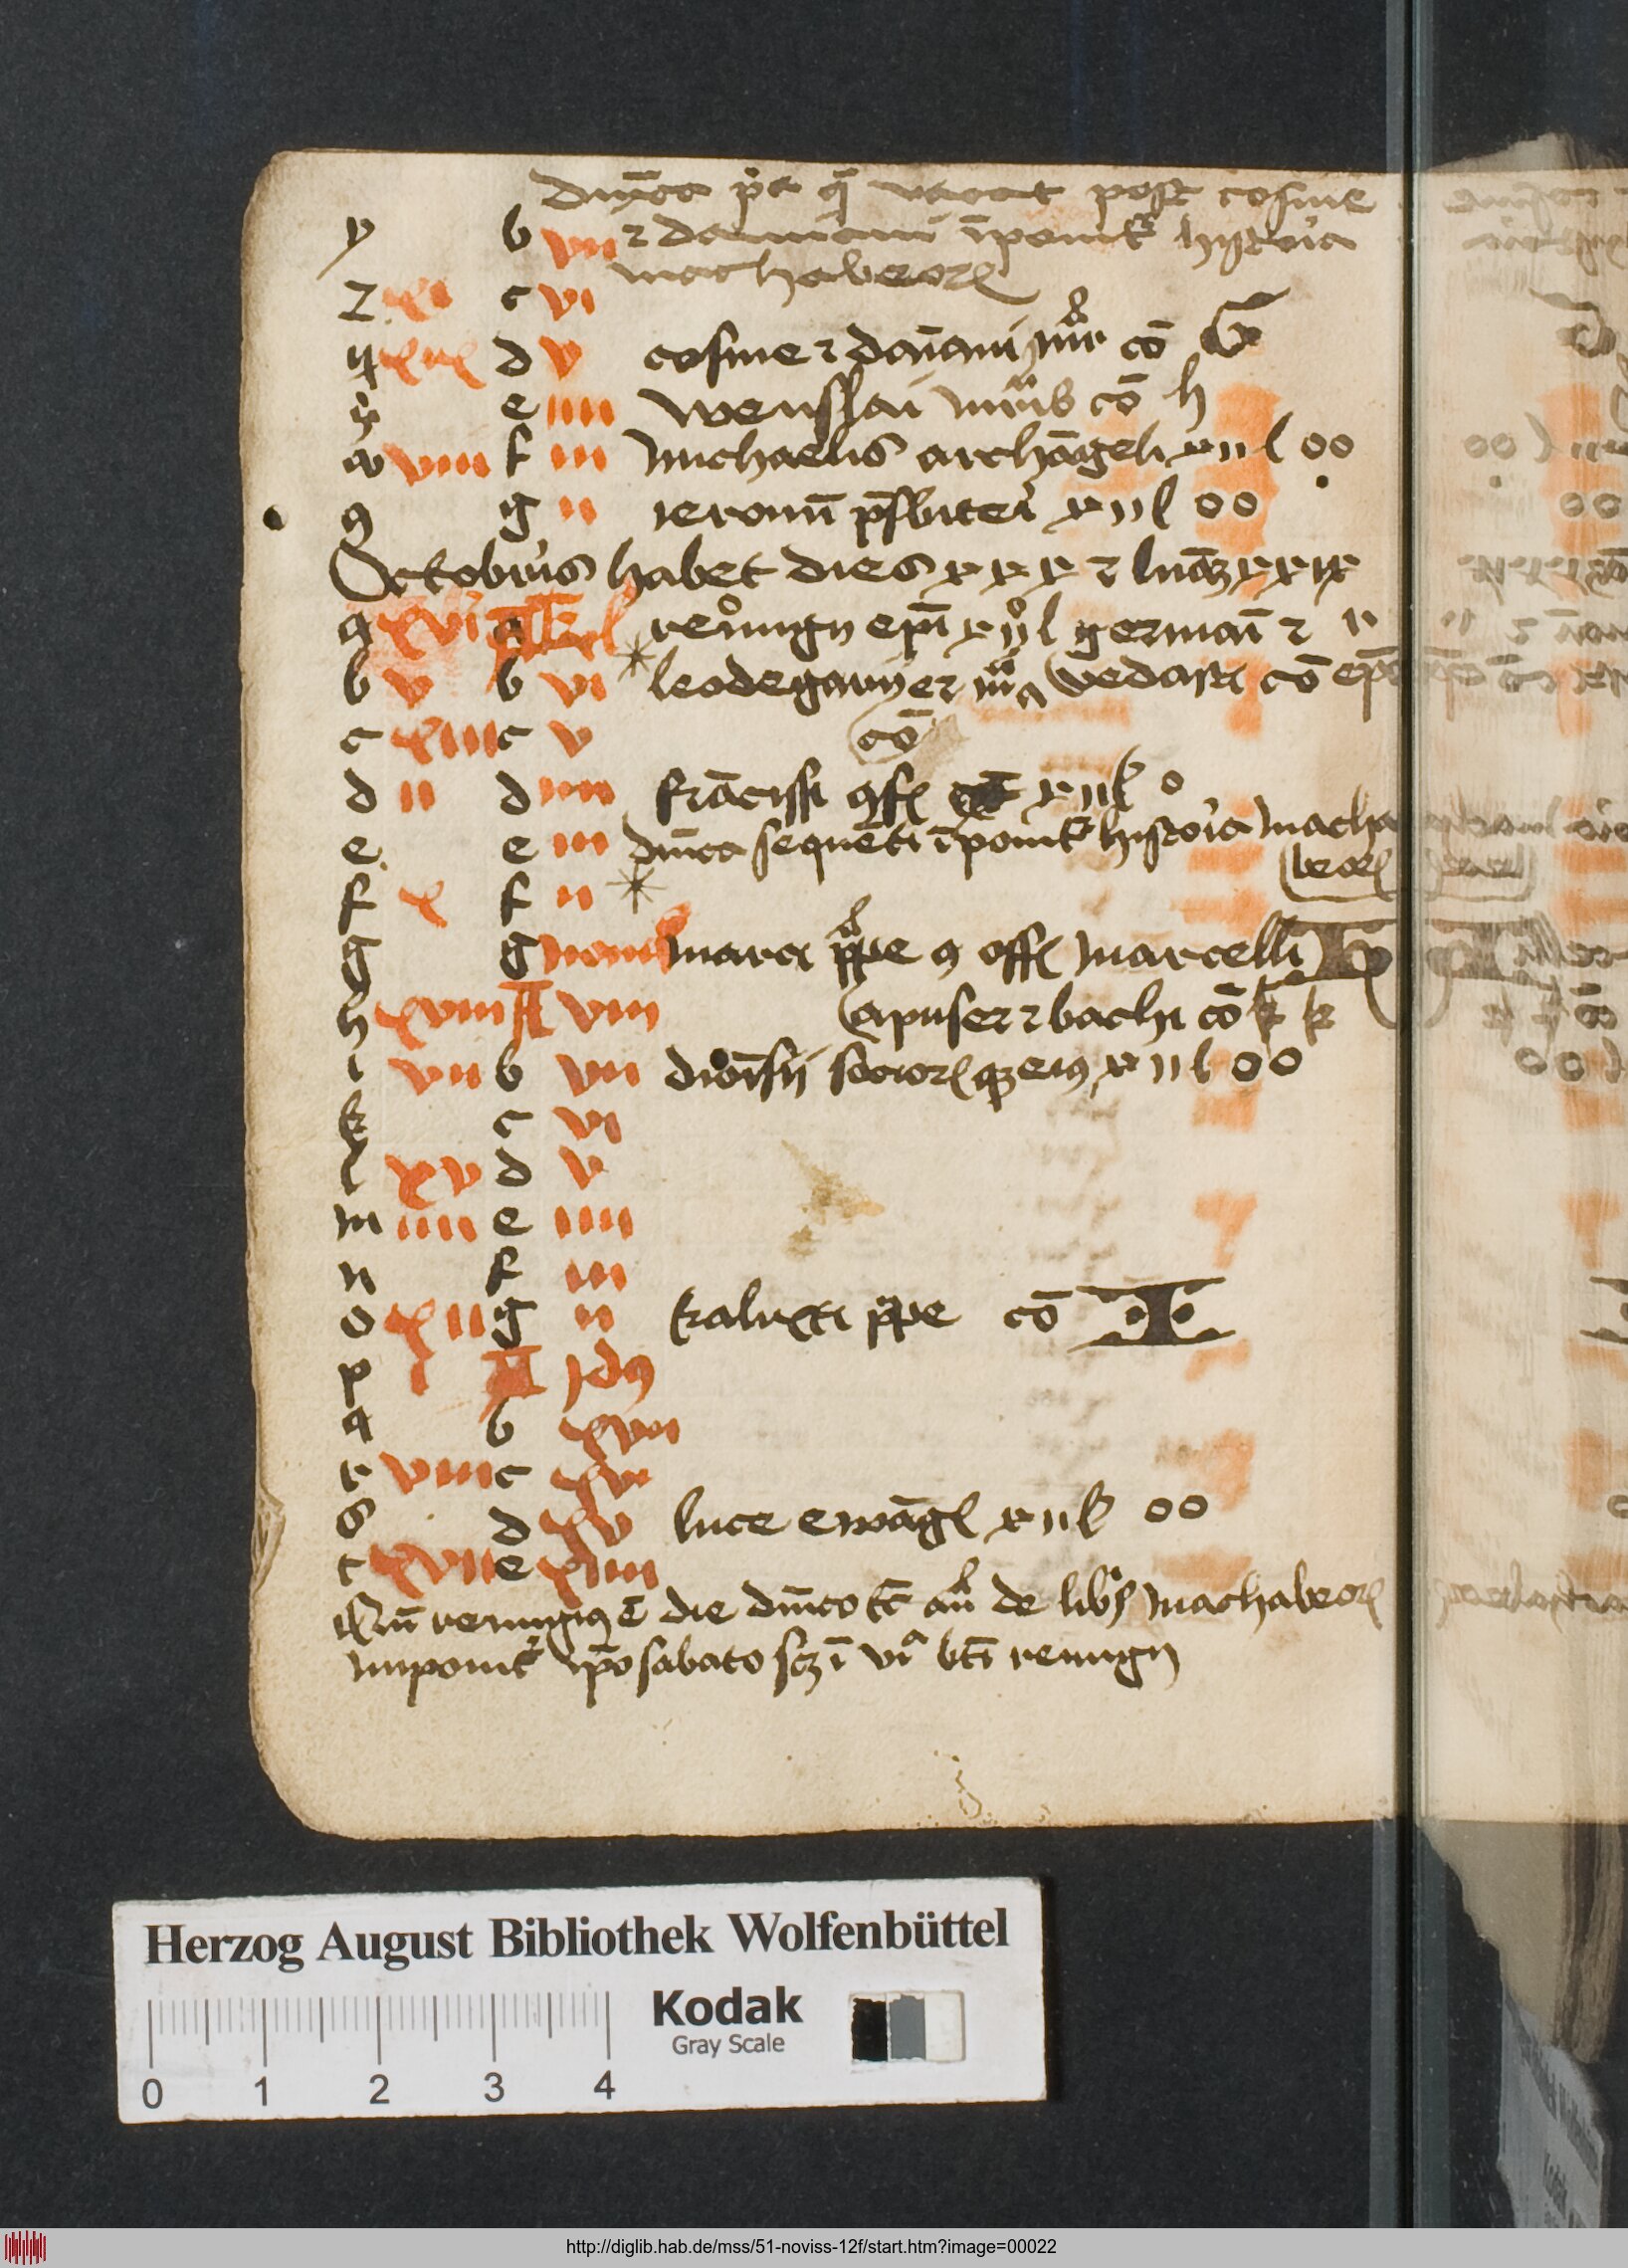 dn̄ica p̄a q̄ vacat post cosme
y b vii ⁊ damiani īponit᷑ historia
machabeoꝝ
z xi c vi
ꝗ xix d v cosme ⁊ dam̄iani mr̄ cō G
e iiii wenslai mr̄is cō h
viii f iii Michaelis archāgeli xii l oo
9 g ii ieronim̄ p̄sbiteri xii l oo
Octobris habet dies xxx ⁊ lunā xxix
a xvi A kl remigii ep̄i xii l germani ⁊
b v b vi leodegarii ep̄ mr̄ vedasti cō ep̄i
c xiii c v cō
d ii d iiii frācissi ꝯf xii l o
e e iii dn̄ica sequēti īponit᷑ historia macha
beoꝝ
f x f ii
g g nonas marci p̄pe ꝯ off marcelli
h xviii A viii apuser ⁊ bachi cō k k
i vii b vii dioīsii socioꝝqꝫ eiꝯ xii l oo
k c vi
l xv d v
m iiii e iiii
n f iii
o xii g ii kalixti p̄pe cō I
p i A Idꝯ
q b xvii
r viiii c xvi
s d xv luce ewāgl xii l oo
t xvii e xiiii
Qn̄ remigiꝯ ē die dn̄ico tc̄ an̄ de libris Machabeoꝝ
imponit᷑ ip̄o sabato scꝫ ī via bt̄i remigii
Herzog August Bibliothek Wolfenbüttel
Kodak
Gray Scale
0 1 2 3 4
http://diglib.hab.de/mss/51-noviss-12f/start.htm?image=00022